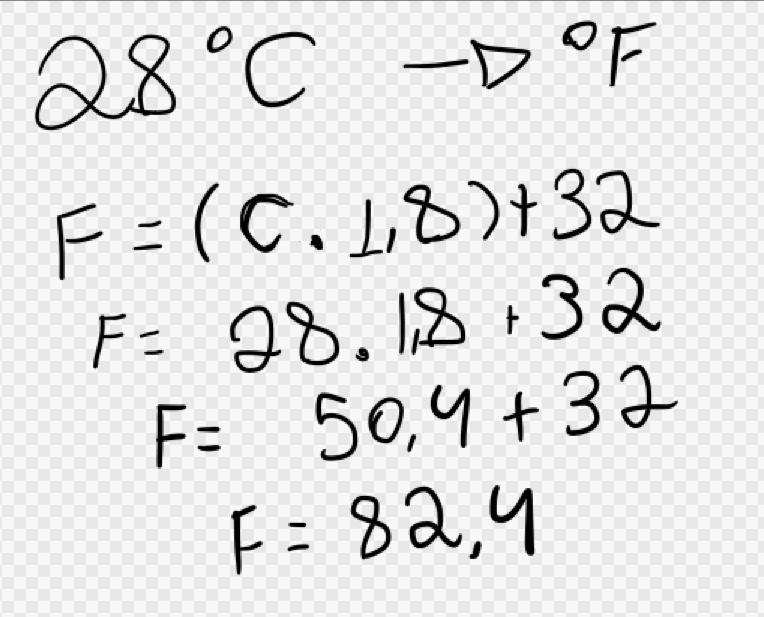 28 °C → °F
F = (C . 1,8) + 32
F = 28 . 1,8 + 32
F = 50,4 + 32
F = 82,4